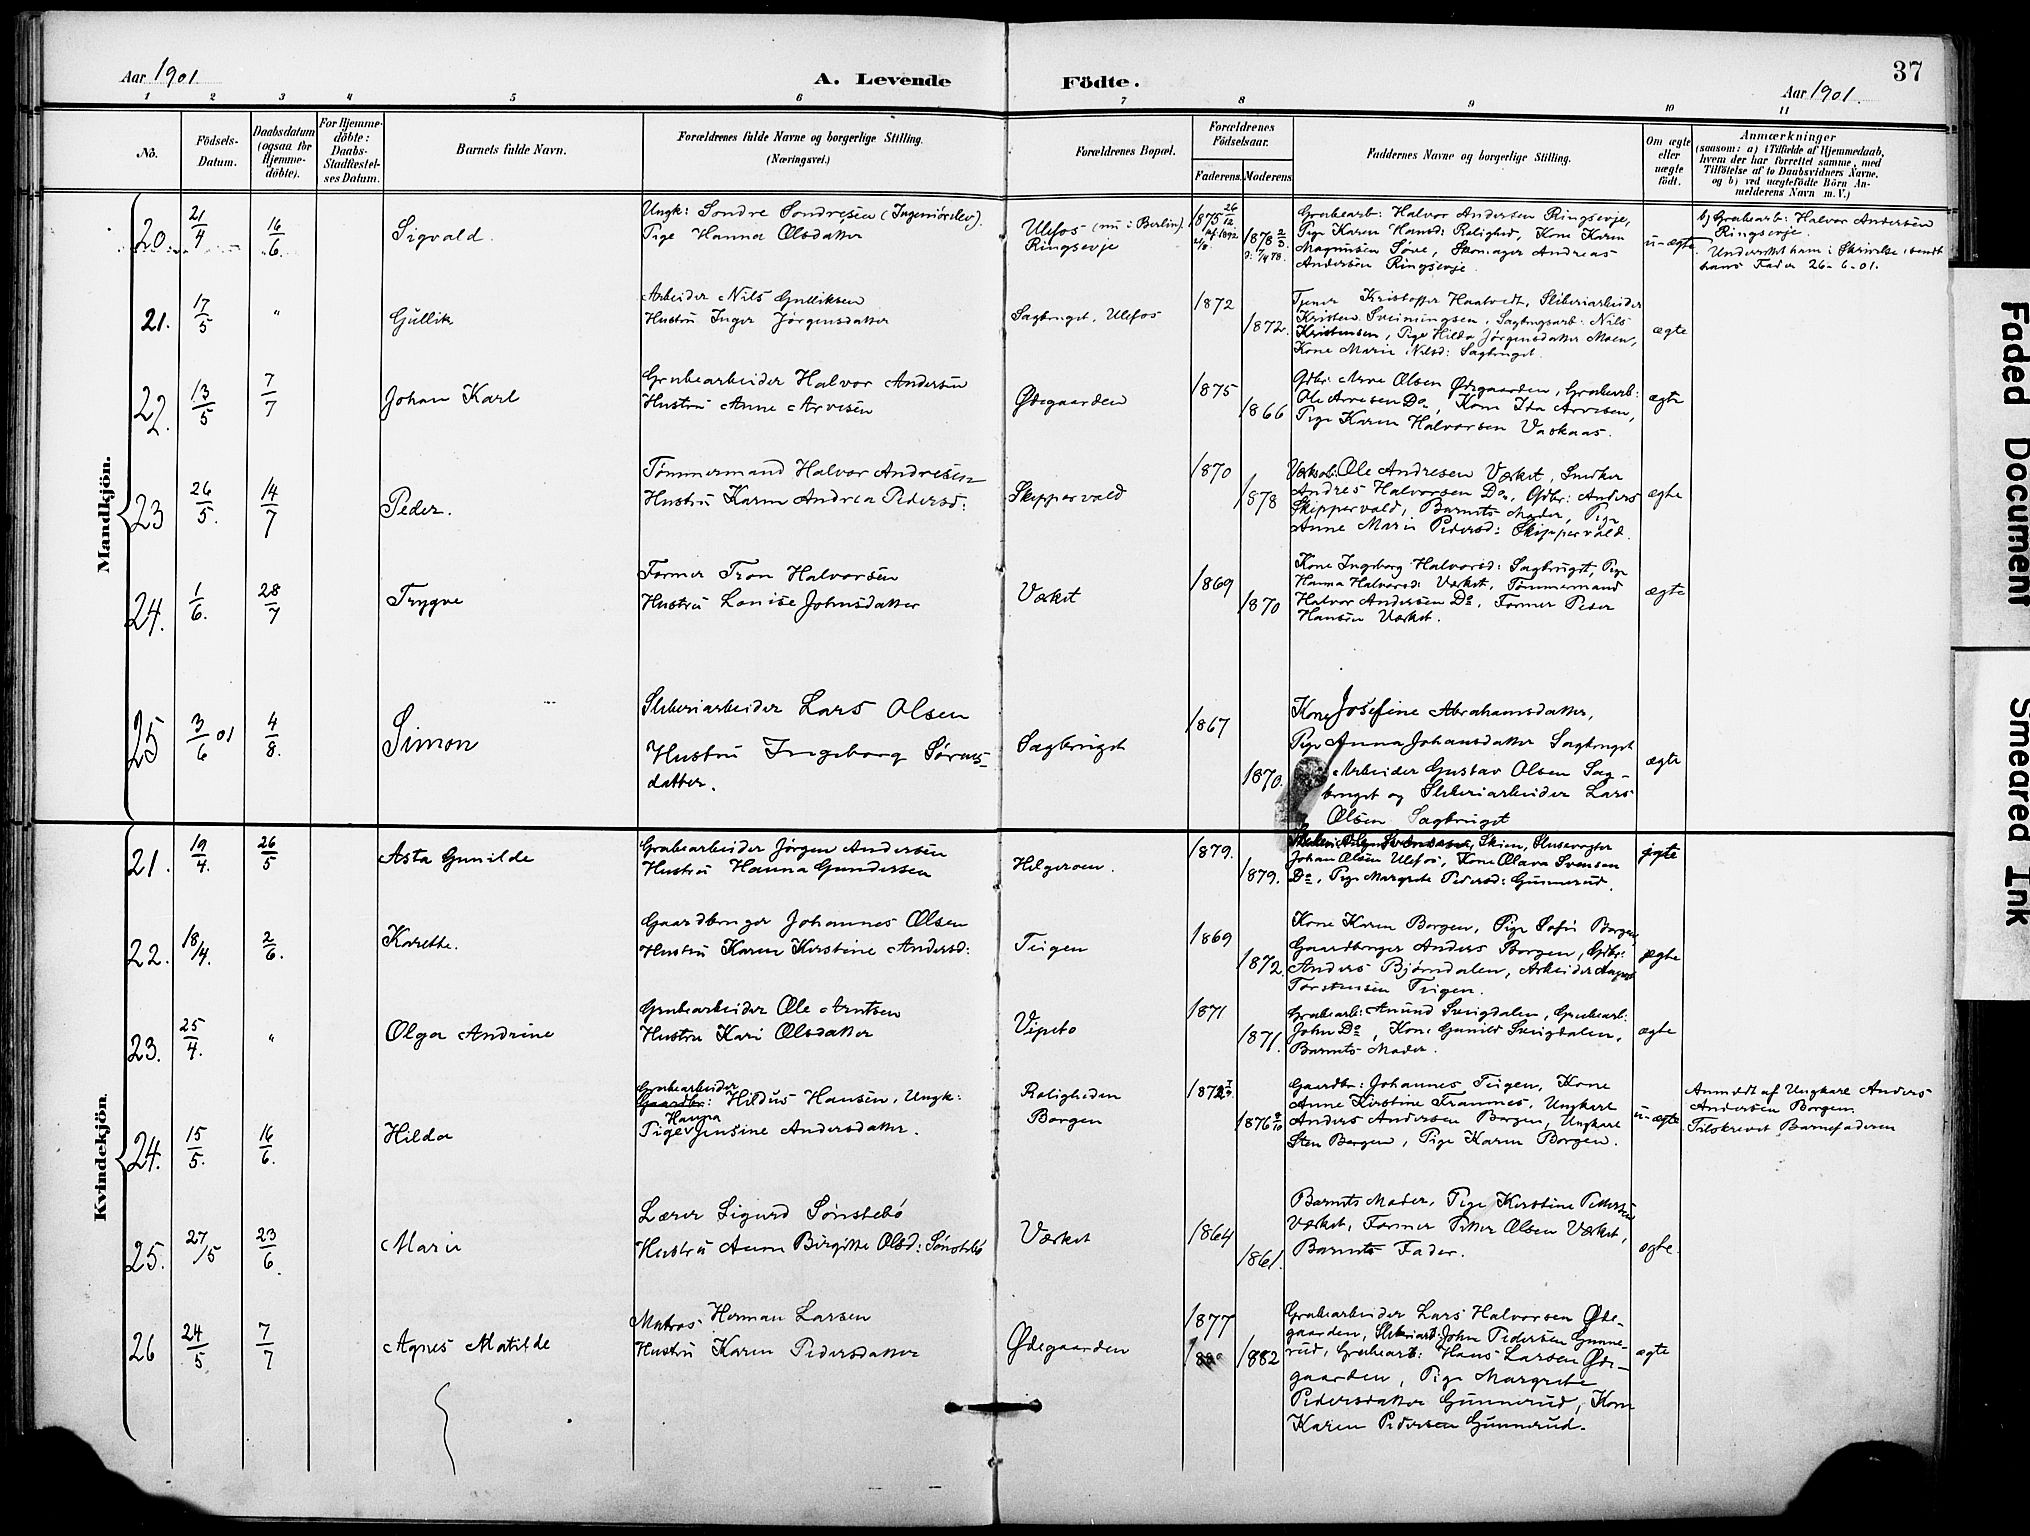 Aar 1901.
A. Levende
Födte.
Aar 1901.
37
1 2 3 4 5 6 7 8 9 10 11
No.
Födsels-
Datum.
Daabsdatum
(ogsaa for
Hjemme-
döbte).
For Hjemme-
döbte:
Daabs-
Stadfæstel-
ses Datum.
Barnets fulde Navn.
Forældrenes fulde Navne og borgerlige Stilling.
(Næringsvei.)
Forældrenes Bopæl.
Forældrenes
Födselsaar.
Faderens. Moderens.
Faddernes Navne og borgerlige Stilling.
Om ægte
eller
uægte
födt.
Anmærkninger
(saasom: a) i Tilfælde af Hjemmedaab,
hvem der har forrettet samme, med
Tilföielse af to Daabsvidners Navne.
og b) ved uægtefödte Börn An-
melderens Navn m. V.)
Mandkjön.
20.
21/4
16/6
Sigvald.
Ungk: Sondre Sondresen (Ingeniørelev).
Pige Hanna Olsdatter
Ulefos (nu i Berlin).
Ringsevje
1875 26/12
1878 2/3
Grubearb: Halvor Andersen Ringsevje,
Pige Karen Hansd: Rolighed, Kone Karen
Magnusen Søve, Skomager Andreas
Andersen Ringsevje.
u-ægte
b) Grubearb: Halvor Andersen
Ringsevje.
Underrettet ham i Skrivelse sendt
hans Fader 26-6-01.
21.
17/5
"
Gullik
Arbeider Nils Gulliksen
Hustru Inger Jørgensdatter
Sagbruget, Ulefos
1872
1872.
Tjener Kristoffer Haatvedt, Sliberiarbeider
Kristen Sveinungsen, Sagbrugsarb: Nils
Kristensen, Pige Hilda Jørgensdatter Moen,
Kone Marie Nilsd: Sagbruget.
ægte
22.
13/5
7/7
Johan Karl
Grubearbeider Halvor Andersen
Hustru Anne Arvesen
Ødegaarden
1875
1866
Gdbr: Arve Olsen Ødegaarden, Grubearb:
Ole Arvesen Do, Kone Ida Arvesen,
Pige Karen Halvorsen Vaskaas.
ægte
23
26/5.
14/7
Peder.
Tømmermand Halvor Andresen
Hustru Karen Andrea Pedersd:
Skippervald
1870
1878
Ole Andresen Værket, Snedker
Andres Halvorsen Do, Gdbr: Anders
Skippervald, Barnets Moder, Pige
Anne Marie Pedersd: Skippervald.
ægte
24.
1/6.
28/7
Trygve
Former Tron Halvorsen
Hustru Lovise Johnsdatter
Værket
1869
1870
Kone Ingeborg Halvorsd: Sagbruget, Pige
Hanna Halvorsd: Værket, Tømmermand
Halvor Andersen Do, Former Peter
Hansen Værket.
ægte
25
3/6 01
4/8.
Simon
Sliberiarbeider Lars Olsen
Hustru Ingeborg Sørens-
datter.
Sagbruget
1867
1870.
Kone Josefine Abrahamsdatter,
Pige Anna Johansdatter Sagbruget
Arbeider Gustav Olsen Sag-
bruget og Sliberiarbeider Lars
Olsen Sagbruget
ægte
Kvindekjön.
21.
19/4.
26/5
Asta Gunilde
Grubearbeider Jørgen Andersen
Hustru Hanna Gundersen
Helgeroen.
1879.
1879.
Skien, Slusevogter
Johan Olsen Ulefos, Kone Olava Svensen
Do, Pige Margrete Pedersd: Gunnerud.
ægte
22.
18/4.
2/6.
Karethe.
Gaardbruger Johannes Olsen
Hustru Karen Kirstine Andersd:
Teigen
1869
1872.
Kone Karen Borgen, Pige Sofie Borgen,
Gaardbruger Anders Borgen, Gdbr:
Anders Bjørndalen, Arbeider August
Torstensen Teigen.
ægte
23.
25/4.
"
Olga Andrine
Grubearbeider Ole Arntsen
Hustru Kari Olsdatter
Vipeto
1871
1871.
Grubearb: Anund Sveigdalen, Grubearb:
John Do, Kone Gunild Sveigdalen,
Barnets Moder.
ægte
24.
15/5.
16/6.
Hilda
Grubearbeider
Gaardbr: Hildus Hansen, Ungk:
Hanna
Pige Jensine Andersdatter.
Roligheden
Borgen
1876 2/10
Gaardbr: Johannes Teigen, Kone
Anne Kirstine Framnes, Ungkarl
Anders Andersen Borgen, Ungkarl
Sten Borgen, Pige Karen Borgen.
u-ægte
Anmeldt af Ungkarl Anders
Andersen Borgen.
Tilskrevet Barnefaderen
25.
27/5
23/6.
Marie
Lærer Sigurd Sønstebø
Hustru Anne Birgitte Olsd: Sønstebø
Værket
1864
1861.
Barnets Moder, Pige Kirstine Pettersen
Værket, Former Petter Olsen Værket,
Barnets Fader.
ægte.
26
24/5
7/7
Agnes Matilde
Matros Herman Larsen
Hustru Karen Pedersdatter
Ødegaarden
1877
1882
Grubearbeider Lars Halvorsen Øde-
gaarden, Sliberiarb: John Pedersen Gunne-
rud, Grubearb: Hans Larsen Øde-
gaarden, Pige Margrete
Pedersdatter Gunnerud, Kone
Karen Pedersen Gunnerud.
ægte
Faded Document
Smeared Ink